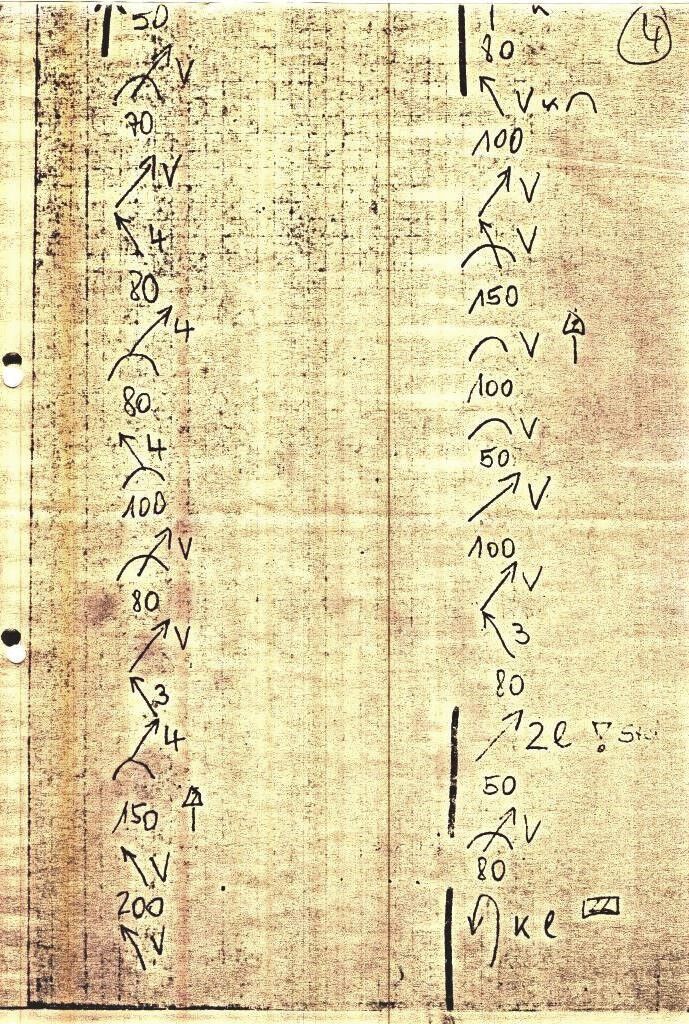 50
V
70
V
4
80
4
80
4
100
V
80
V
3
4
150
V
200
V
4
80
V
100
V
V
150
V
100
V
50
V
100
V
3
80
2l
50
V
80
K l